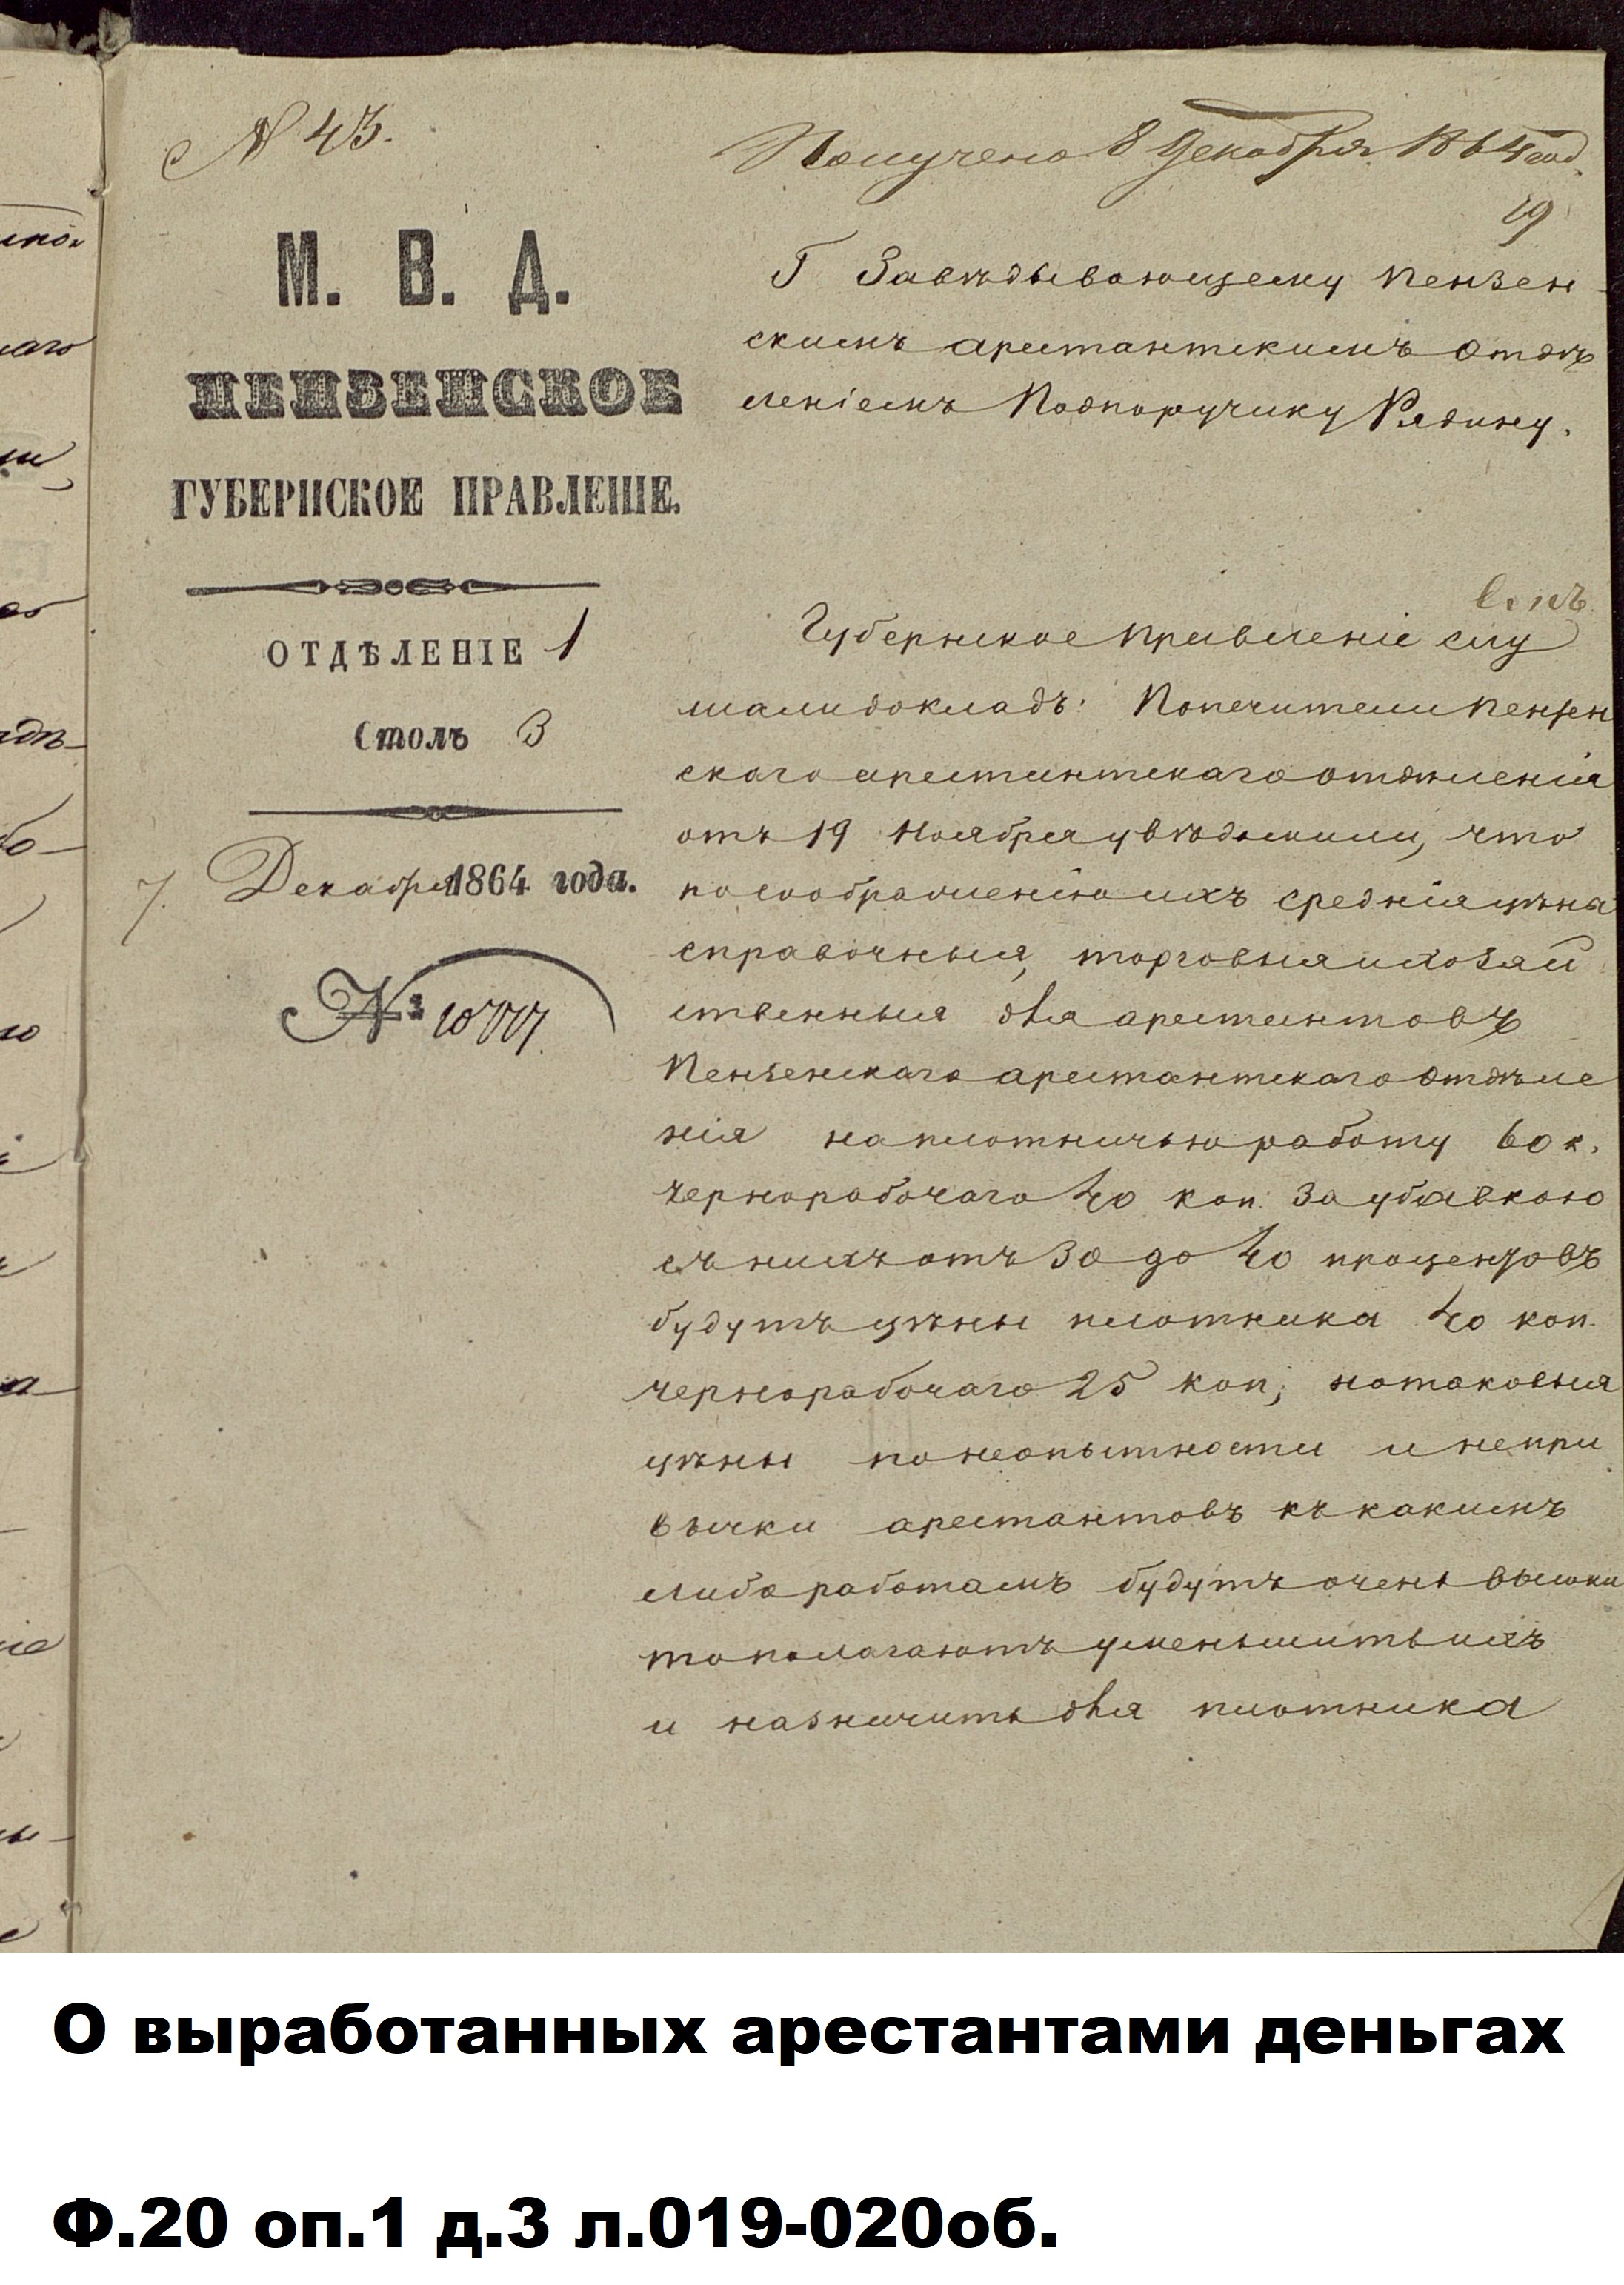 N 43.
Получено 8 Декабря 1864 год.
19
М. В. Д.
ПЕНЗЕНСКОЕ
ГУБЕРНСКОЕ ПРАВЛЕНІЕ.
ОТДѢЛЕНІЕ 1
Столъ 3
7. Декабря 1864 года.
№
Г Завѣдывающему Пензен
скимъ арестантскимъ отдѣ
леніемъ Подпоручику Рядину.
Губернское Правленіе слу
шали докладъ: Попечители Пензен
скаго арестантскаго отдѣленія
отъ 19 Ноября увѣдомили, что
по соображенію ихъ среднія цѣна
справочныя, торговыя и хозяй
ственныя для арестантовъ
Пензенскаго арестантскаго отдѣле
нія на плотничью работу 60 к.
чернорабочаго 40 коп. За убавкою
съ нихъ отъ 30 до 40 процентовъ
будутъ цѣны плотника 40 коп.
чернорабочаго 25 коп; но таковыя
цѣны по неопытности и непри
вычки арестантовъ къ какимъ
либо работамъ будутъ очень высоки
то полагаютъ уменьшить ихъ
и назначить для плотника
О выработанных арестантами деньгах
Ф.20 оп.1 д.3 л.019-020об.